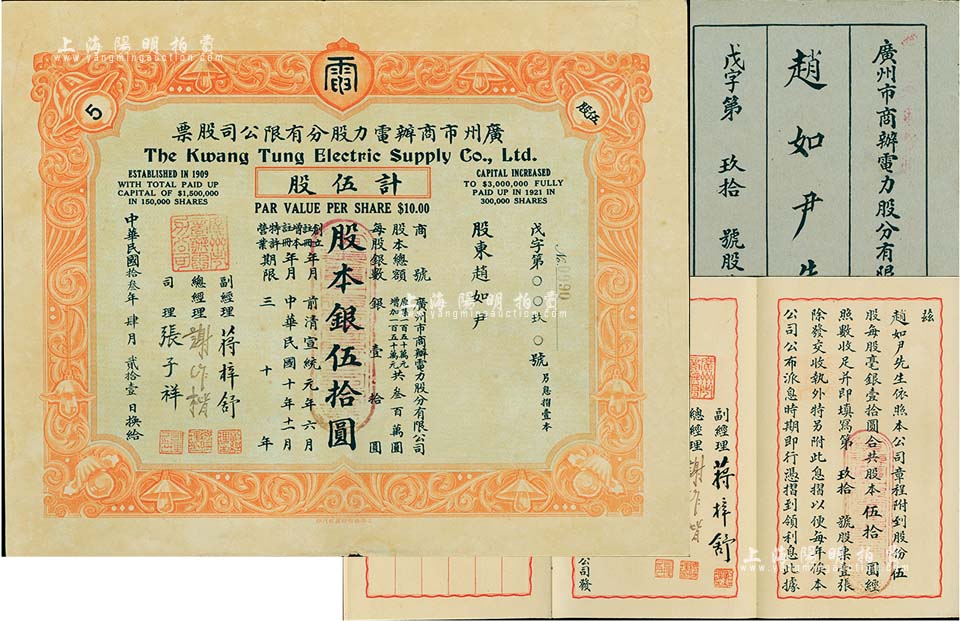 上海陽明拍賣
www.yangmingauction.com
電
5
伍股
廣州市商辦電力股分有限公司股票
The Kwang Tung Electric Supply Co., Ltd.
ESTABLISHED IN 1909
WITH TOTAL PAID UP
CAPITAL OF $1,500,000
IN 150,000 SHARES
計伍股
CAPITAL INCREASED
TO $3,000,000 FULLY
PAID UP IN 1921 IN
300,000 SHARES
PAR VALUE PER SHARE $10.00
戊字第〇〇玖〇號
另息摺壹本
股東趙如尹
商號 廣州市商辦電力股分有限公司
股本總額 原業一百五十萬元 增加一百五十萬元 共叁百萬圓
每股銀數 銀壹拾圓
股本銀伍拾圓
創立註冊年月 前清宣統元年六月
增本註冊年月 中華民國十年十一月
特許營業期限 三十年
副經理 蔣梓舒
總經理 謝作楷
司理 張子祥
中華民國拾叁年肆月貳拾壹日換給
廣州市商辦電力股分有限
趙如尹先
戊字第 玖拾 號股
茲
趙如尹先生依照本公司章程附到股份伍
股每股毫銀壹拾圓合共股本伍拾圓經
照數收足并即填寫第玖拾號股票壹張
除發交收執外特另附此息摺以便每年俟本
公司公布派息時期即行憑摺到領利息此據
副經理 蔣梓舒
總經理 謝作楷
公司發
上海陽明拍賣
www.yangmingauction.com